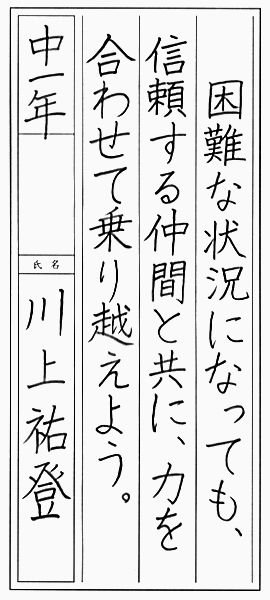 困難な状況になっても、
信頼する仲間と共に、力を
合わせて乗り越えよう。
中一年
氏名
川上祐登